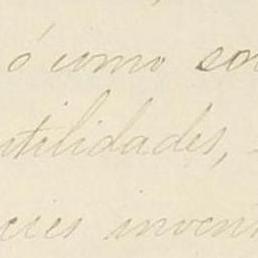 ó como so
utilidades,
cies invent